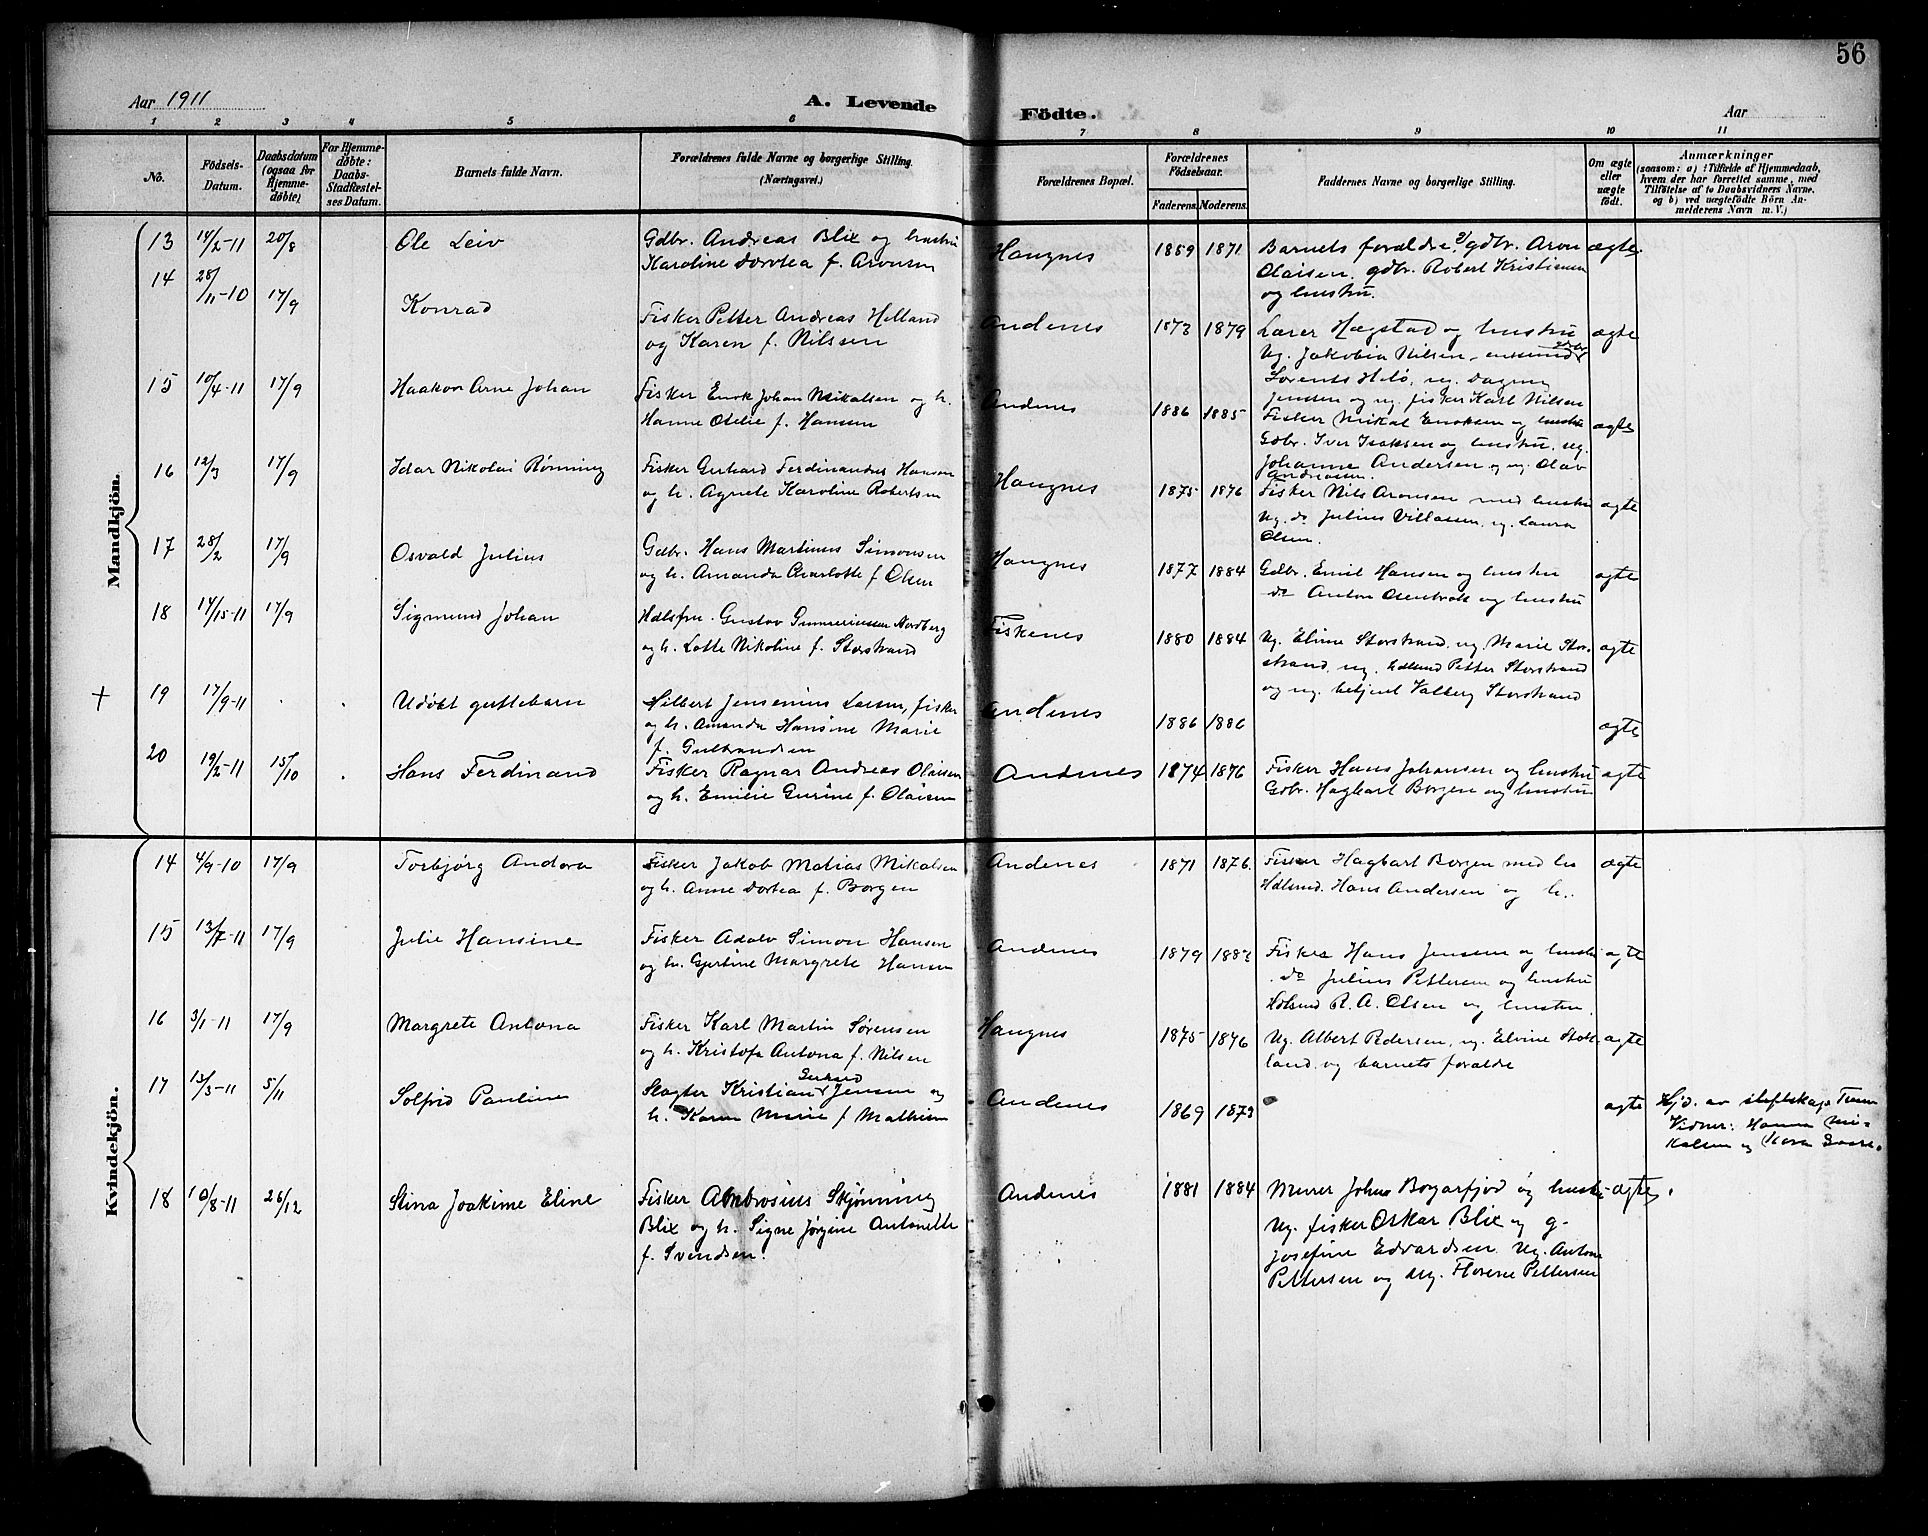 56
Aar 1911
A. Levende Födte.
Aar
1 2 3 4 5 6 7 8 9 10 11
No.
Födsels-
Datum.
Daabsdatum
(ogsaa for
Hjemme-
døbte)
For Hjemme-
døbte:
Daabs-
Stadfæstel-
ses Datum.
Barnets fulde Navn.
Forældrenes fulde Navne og borgerlige Stilling.
(Næringsvei.)
Forældrenes Bopæl.
Forældrenes
Födselsaar.
Faderens. Moderens.
Faddernes Navne og borgerlige Stilling.
Om ægte
eller
uægte
født.
Anmærkninger
(saasom: a) i Tilfælde af Hjemmedaab,
hvem der har forrettet samme, med
Tilføielse af to Daabsvidners Navne.
og b) ved uægtefødte Börn An-
melderens Navn m. V.)
Mandkjön.
13 14/2-11 20/8 Ole Leiv
Gdbr. Andreas Blix og hustru
Karoline Dorotea f. Aronsen
Haugnes 1859 1871
Barnets forældre, gdbr. Aron
Olaisen. gdbr. Robert Kristiansen
og hustru.
ægte
14 28/11-10 17/9 Konrad
Fisker Petter Andreas Helland
og Karen f. Nilssen
Andenes 1873 1879
Lærer Hægstad og hustru
Ug. Jakobia Nilsen
Jenssen og ug. fisker Karl Nilsen
ægte
15 10/4-11 17/9 Haakon Arne Johan
Fisker Enok Johan Mikalsen og h.
Hanna Otelie f. Hansen
Andenes 1886 1885
Fisker Mikal Enoksen og hustru
Gdbr. Iver Isaksen og hustru. ug.
Johanne Andersen og ug. Olav
Andreassen.
ægte
16 12/3 17/9 Idar Nikolai Rønning
Fisker Gerhard Ferdinandus Hansen
og h. Agnete Karoline Robertsen
Haugnes 1875 1876
Fisker Nils Aronsen med hustru
Ug. do Julius Villassen, ug. Laura
Olsen.
ægte
17 28/2 17/9 Osvald Julius
Gdbr. Hans Martinus Simonsen
og h. Amanda Charlotte f. Olsen
Haugnes 1877 1884
Gdbr. Emil Hansen og hustru
do Anton og hustru
ægte
18 14/15-11 17/9 Sigmund Johan
Gustav Nordberg
og h. Lotte Nikoline f. Storstrand
Fiskenes 1880 1884
Ug. Eline Storstrand, ug. Marie Stor-
strand, ug. Petter Storstrand
og ug. betjent Valberg Storstrand
ægte
+ 19 17/9-11 Udöbt guttebarn
Hilbert Jensenius Larsen, fisker
og h. Amanda Hansine Marie
f. Gulbrandsen
Andenes 1886 1886
ægte
20 19/2-11 15/10 Hans Ferdinand
Fisker Ragnar Andreas Olaisen
og h. Emilie Gurine f. Olaisen
Andenes 1874 1876
Fisker Hans Johansen og hustru
Gdbr. Hagbart Borgen og hustru
ægte
Kvindekjön.
14 4/9-10 17/9 Torbjørg Andora
Fisker Jakob Matias Mikalsen
og h. Anne Dortea f. Borgen
Andenes 1871 1876.
Fisker Hagbart Borgen med hu
Hdlsmd. Hans Andersen og h.
ægte
15 13/7-11 17/9 Julie Hansine
Fisker Adolv Simon Hansen
og h. Gjertine Margrete Hansen
Andenes 1879
Fisker Hans Jensen og hustru
do Julius Pettersen og hustru
Hdlsmd R. A. Olsen og hustru.
ægte
16 3/1-11 17/9 Margrete Antona
Fisker Karl Martin Sørensen
og h. Kristofa Antona f. Nilsen
Haugnes 1875 1876
Ug. Albert Pedersen, ug. Elvine
land og barnets forældre
ægte
17 13/3-11 5/11 Solfrid Pauline
Slagter Kristian Gerhard Jensen og
h. Karen Marie f. Mathisen
Andenes 1869 1873
ægte
Hjd. av
Vidner: Hanna Mi-
kalsen og
18 10/8-11 26/12 Stina Joakime Eline
Fisker Ambrosius Skjønning
Blix og h. Signe Jørgine Antonette
f. Svendsen.
Andenes 1881 1884
Murer Johns Borgarfjod og hustru
Ug. fisker Oskar Blix og g.
Josefine Edvardsen. Ug. Anton
Pettersen og ug. Florene Pettersen
ægte